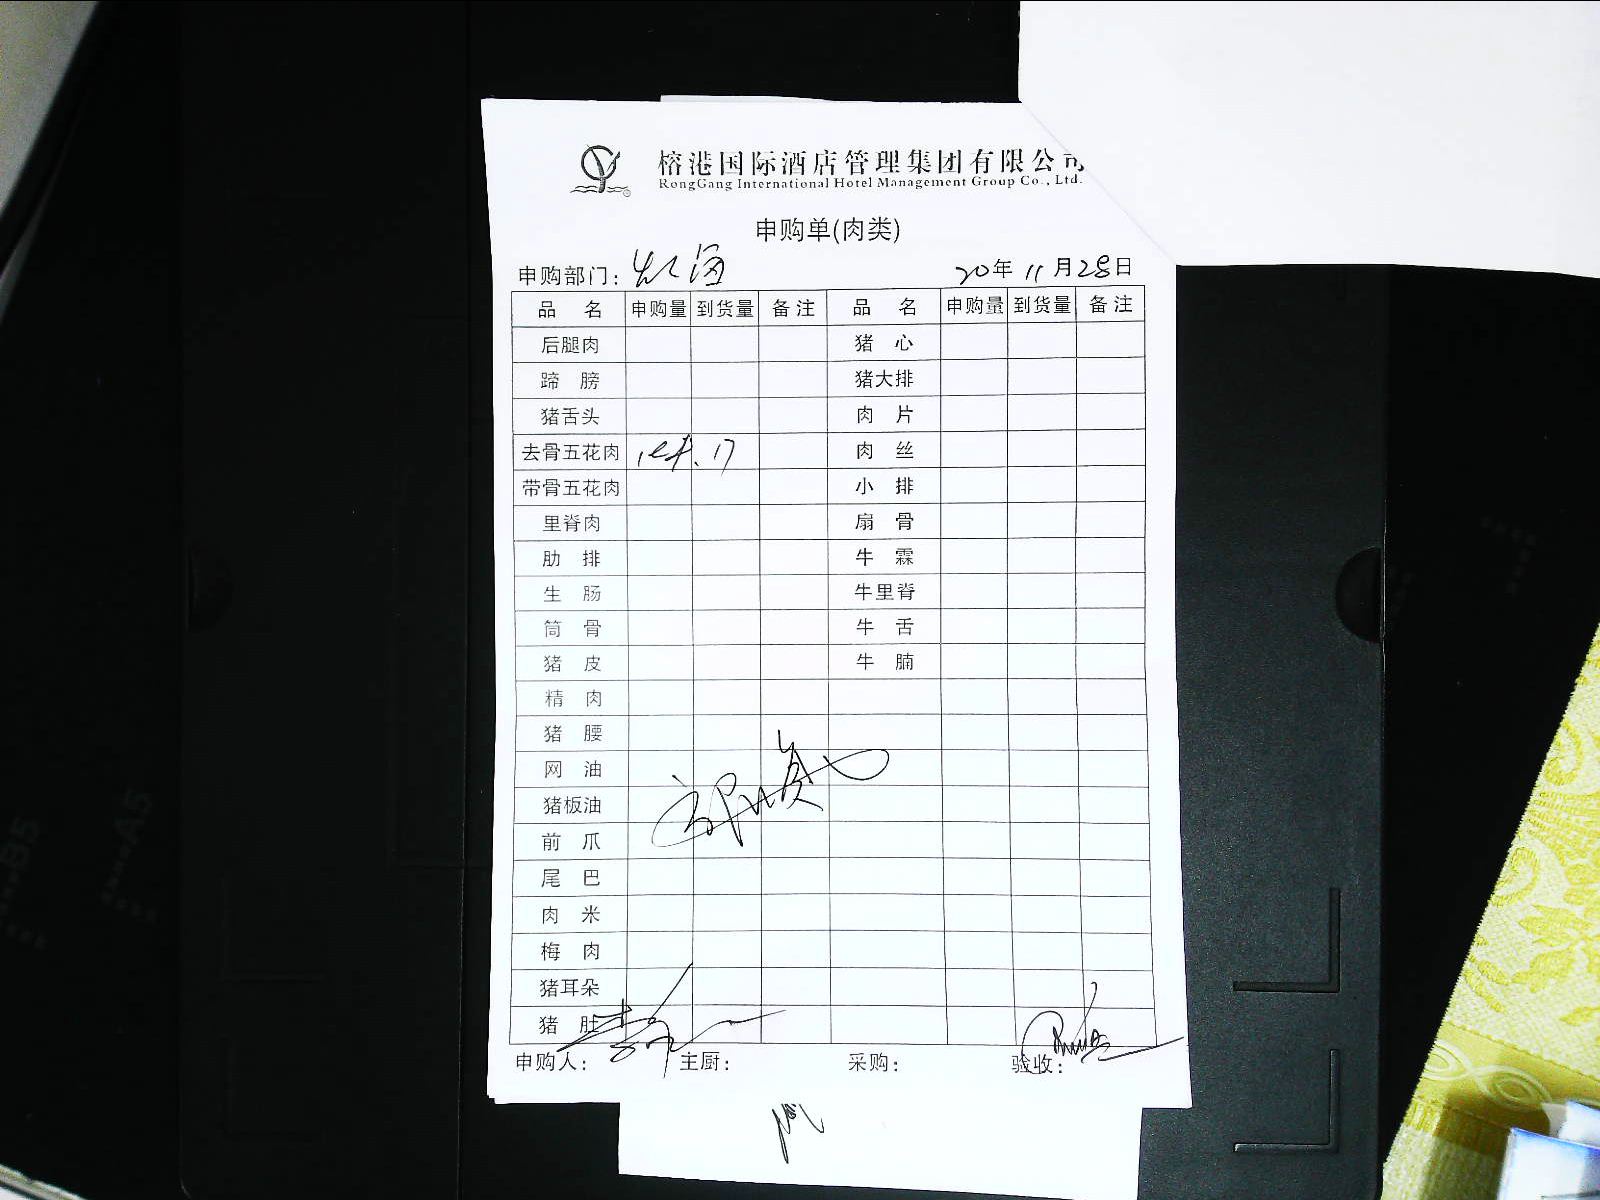 榕港国际酒店管理集团有限公司
RongGang International Hotel Management Group Co., Ltd.
申购单(肉类)
申购部门: 20年 11月 28日
品 名 申购量 到货量 备注 品 名 申购量 到货量 备注
后腿肉 猪 心
蹄 膀 猪大排
猪舌头 肉 片
去骨五花肉 17 肉 丝
带骨五花肉 小 排
里脊肉 扇 骨
肋 排 牛 霖
生 肠 牛里脊
筒 骨 牛 舌
猪 皮 牛 腩
精 肉
猪 腰
网 油
猪板油
前 爪
尾 巴
肉 米
梅 肉
猪耳朵
猪 肚
申购人: 主厨: 采购: 验收: